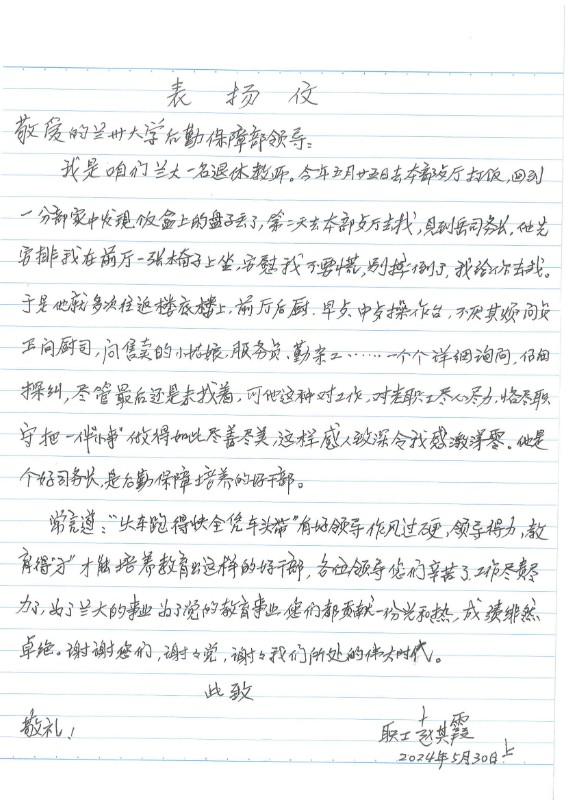 表扬仪
敬爱的兰州大学后勤保障部领导:
我是咱们兰大一名退休教师。今年五月廿五日去本部歺厅打饭,回到
一分部家中发现饭盒上的盘子丢了,第二天去本部歺厅去找,见到岳司务长,他先
安排我在前厅一张椅子上坐,安慰我不要慌,别摔倒了,我给你去找。
于是他就多次往返楼底楼上,前厅后厨.早点.中歺操作台,不厌其烦问员
工问厨司,问售卖的小姑娘,服务员、勤杂工……一个个详细询问,仔细
操纠,尽管最后还是未找着,可他这种对工作,对老职工尽心尽力,恪尽职
守把一件"小事"做得如此尽善尽美,这样感人致深令我感激涕零。他是
个好司务长,是后勤保障培养的好干部。
常言道:"火车跑得快全凭车头带"有好领导作风过硬,领导得力,教
育得"法"才能培养教育出这样的好干部,各位领导您们辛苦了,工作尽责尽
力了,为了兰大的事业为了党的教育事业,您们都贡献一份光和热,成绩非然
卓绝。谢谢您们,谢谢党,谢谢我们所处的伟大时代。
此致
敬礼!
职工赵其霞
2024年5月30日上